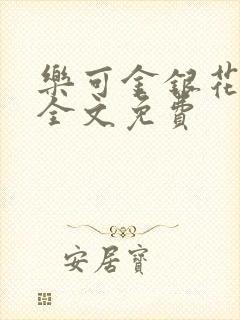 樂可金銀花
全文免費
安居寶